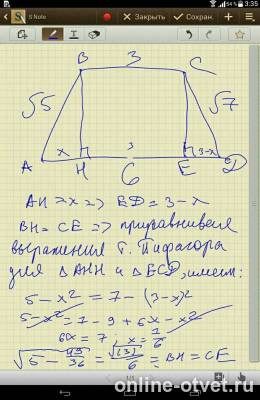 54% 3:35
S Note Закрыть Сохран.
B 3 C
√5 √7
A x H 3 E 3-x D
6
AH = x => ED = 3 - x
BH = CE => приравнивая
выражения т. Пифагора
для △ AHH и △ ECD, имеем:
5 - x² = 7 - (3-x)²
5 - x² = 7 - 9 + 6x - x²
6x = 7, x = 7/6
√5 - 49/36 = √131/6 = BH = CE
online-otvet.ru